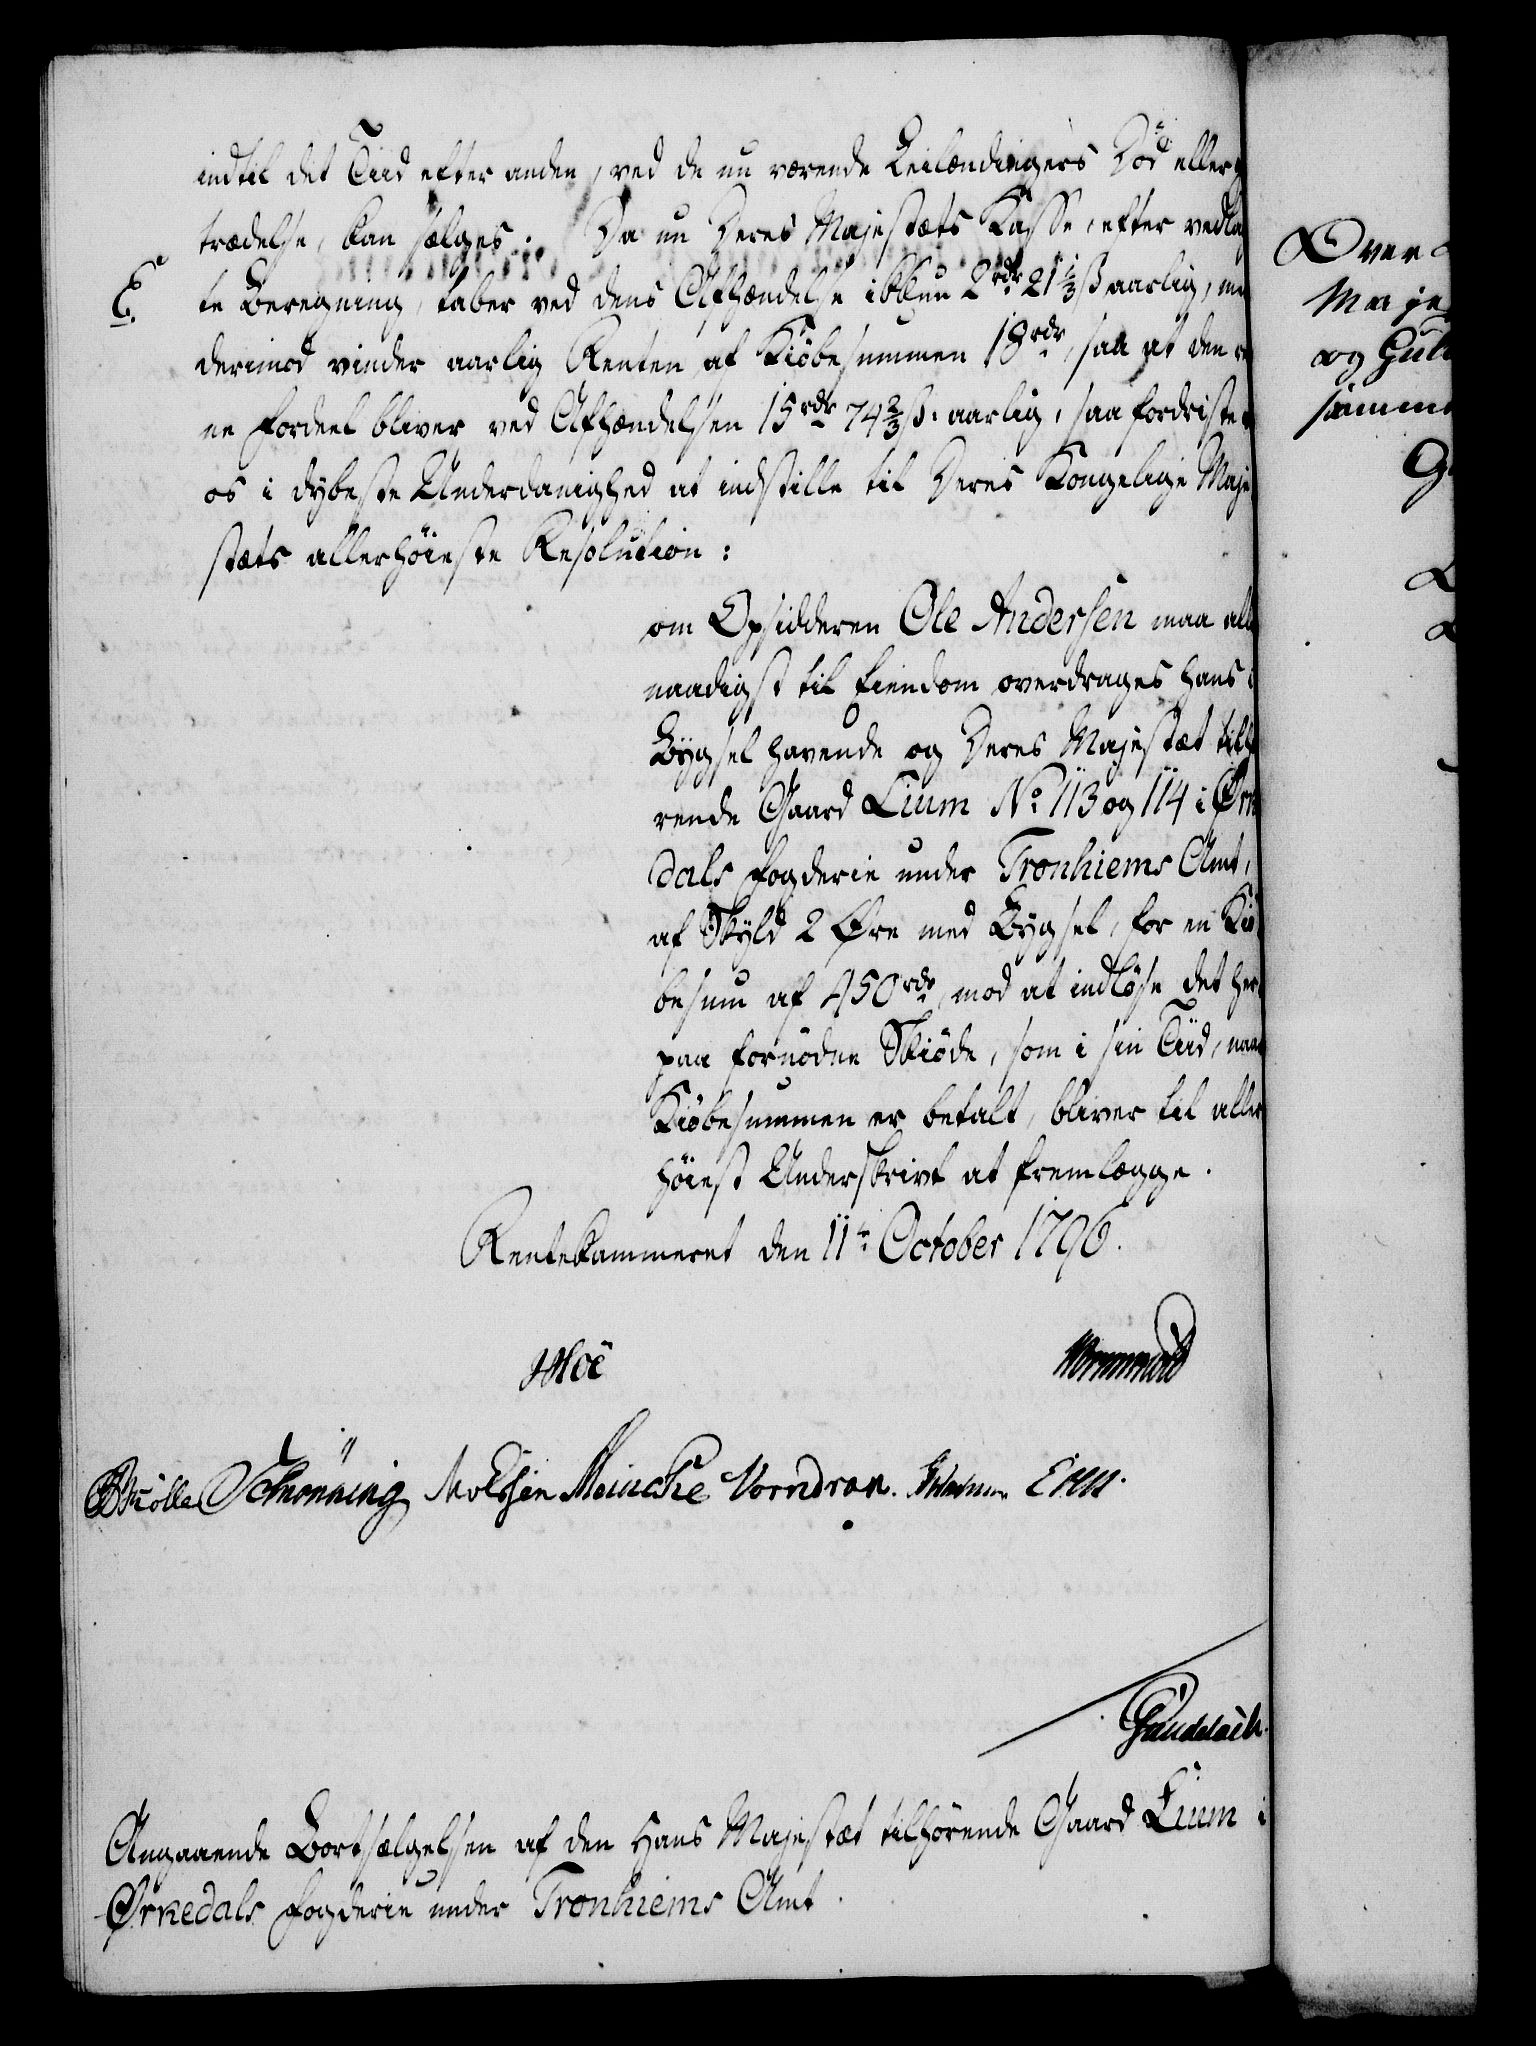 indtil det Tiid efter anden, ved de nu værende Leilændingers Död eller
trædelse, kan sælges. Da nu Deres Majestæts Kasse, efter vedlag
E. te Beregning, taber ved dens Afhændelse ikkun 2 rdr 21 1/3 ß aarlig, me
derimod vinder aarlig Renten af Kiöbesummen 18 rdr, saa at den re
ne Fordeel bliver ved Afhændelsen 15 rdr 74 2/3 ß. aarlig, saa fordriste
os i dybeste Underdanighed at indstille til Deres Kongelige Maje
stæts allerhöieste Resolution:
om Opsidderen Ole Andersen maa aller
naadigst til Eiendom overdrages hans i
Bÿgsel havende og Deres Majestæt tilhö
rende Gaard Lium No 113 og 114 i Ørke
dals Fogderie under Tronhiems Amt,
af Skÿld 2 Øre med Bygsel, for en Kiö
besum af 450 rdr, mod at indlöse det her
paa fornödne Skiöde, som i sin Tiid, naar
Kiöbesummen er betalt, bliver til aller
höiest Underskrivt at fremlægge.
Rentekammeret den 11te October 1796.
Moe Wormskiold
Möller Schönning Meincke Vorndran.
Gündelach.
Angaaende Bortsælgelsen af den Hans Majestæt tilhörende Gaard Lium i
Ørkedals Fogderie under Tronhiems Amt.
Over
Maje
og Gul
samme